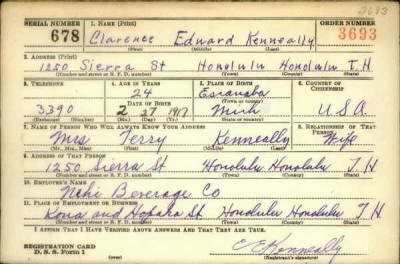 3693
SERIAL NUMBER 1. NAME (Print) ORDER NUMBER
678 Clarence Edward Kenneally 3693
(First) (Middle) (Last)
2. ADDRESS (Print)
1250 Sierra St Honolulu Honolulu T.H
(Number and street or R. F. D. number) (Town) (County) (State)
3. TELEPHONE 4. AGE IN YEARS 5. PLACE OF BIRTH 6. COUNTRY OF CITIZENSHIP
24 Escanaba
DATE OF BIRTH (Town or county)
3390 2 27 1917 Mich USA
(Exchange) (Number) (Mo.) (Day) (Yr.) (State or country)
7. NAME OF PERSON WHO WILL ALWAYS KNOW YOUR ADDRESS 8. RELATIONSHIP OF THAT PERSON
Mrs Terry Kenneally Wife
(Mr., Mrs., Miss) (First) (Middle) (Last)
9. ADDRESS OF THAT PERSON
1250 Sierra St Honolulu Honolulu T.H
(Number and street or R. F. D. number) (Town) (County) (State)
10. EMPLOYER'S NAME
Nehi Beverage Co
11. PLACE OF EMPLOYMENT OR BUSINESS
Kona and Honolulu Honolulu T.H
(Number and street or R. F. D. number) (Town) (County) (State)
I AFFIRM THAT I HAVE VERIFIED ABOVE ANSWERS AND THAT THEY ARE TRUE.
REGISTRATION CARD
D. S. S. Form 1 C E Kenneally
(over) (Registrant's signature)